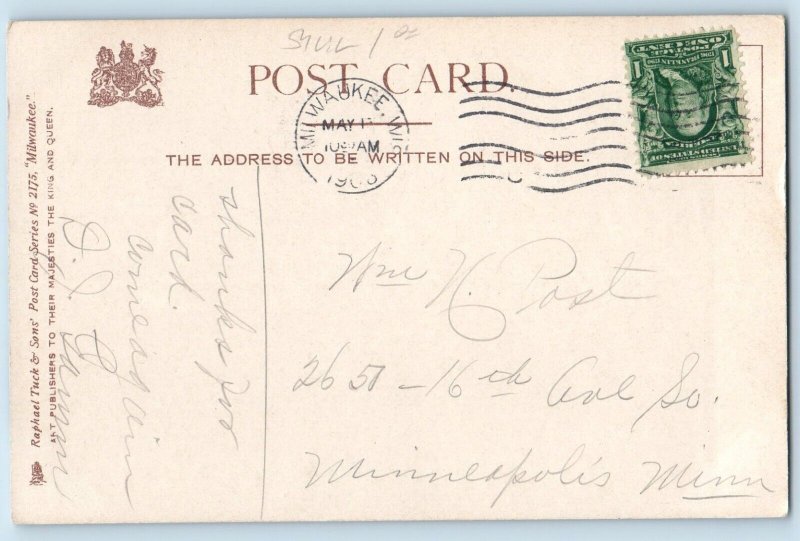 POST CARD.
MILWAUKEE, WIS.
MAY
AM
ONE CENT
POSTAGE
1706 FRANKLIN 1790
1 1
THE ADDRESS TO BE WRITTEN ON THIS SIDE.
Raphael Tuck & Sons' Post Card Series Nº 2175, "Milwaukee."
ART PUBLISHERS TO THEIR MAJESTIES THE KING AND QUEEN.
thanks for
card.
come again
Wm H. Post
2650 - 16th Ave So.
Minneapolis Minn